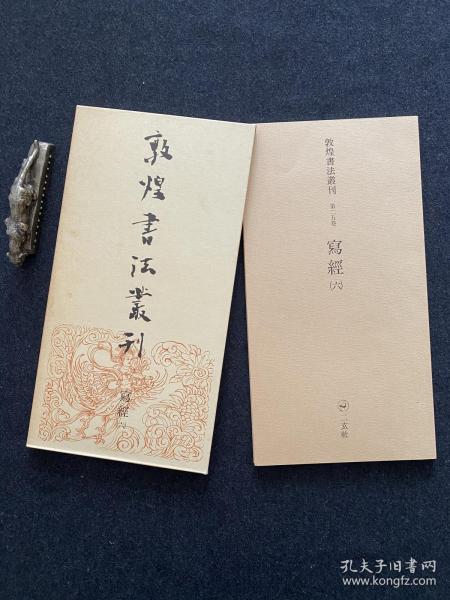 敦煌書法叢刊
寫經(六)
敦煌書法叢刊 第二五卷
寫經
(六)
二玄社
孔夫子旧书网
www.kongfz.com